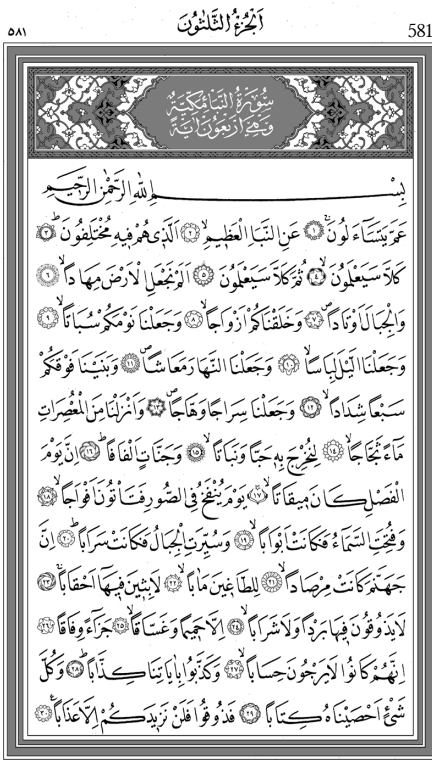 ٥٨١ اَلْجُزْءُ الثَّلٰثُونَ 581
سُورَةُ النَّبَأِ مَكِّيَّةٌ
وَهِيَ اَرْبَعُونَ اٰيَةً
بِسْمِ اللّٰهِ الرَّحْمٰنِ الرَّحِيمِ
عَمَّ يَتَسَٓاءَلُونَۚ ﴿١﴾ عَنِ النَّبَأِ الْعَظِيمِۙ ﴿٢﴾ اَلَّذِى هُمْ فِيهِ مُخْتَلِفُونَۜ ﴿٣﴾
كَلَّا سَيَعْلَمُونَۙ ﴿٤﴾ ثُمَّ كَلَّا سَيَعْلَمُونَ ﴿٥﴾ اَلَمْ نَجْعَلِ الْاَرْضَ مِهَادًاۙ ﴿٦﴾
وَالْجِبَالَ اَوْتَادًاۖ ﴿٧﴾ وَخَلَقْنَاكُمْ اَزْوَاجًاۙ ﴿٨﴾ وَجَعَلْنَا نَوْمَكُمْ سُبَاتًاۙ ﴿٩﴾
وَجَعَلْنَا الَّيْلَ لِبَاسًاۙ ﴿١٠﴾ وَجَعَلْنَا النَّهَارَ مَعَاشًاۖ ﴿١١﴾ وَبَنَيْنَا فَوْقَكُمْ
سَبْعًا شِدَادًاۙ ﴿١٢﴾ وَجَعَلْنَا سِرَاجًا وَهَّاجًاۖ ﴿١٣﴾ وَاَنْزَلْنَا مِنَ الْمُعْصِرَاتِ
مَٓاءً ثَجَّاجًاۙ ﴿١٤﴾ لِنُخْرِجَ بِهِ حَبًّا وَنَبَاتًاۙ ﴿١٥﴾ وَجَنَّاتٍ اَلْفَافًاۜ ﴿١٦﴾ اِنَّ يَوْمَ
الْفَصْلِ كَانَ مِيقَاتًاۙ ﴿١٧﴾ يَوْمَ يُنْفَخُ فِى الصُّورِ فَتَأْتُونَ اَفْوَاجًاۙ ﴿١٨﴾
وَفُتِحَتِ السَّمَٓاءُ فَكَانَتْ اَبْوَابًاۙ ﴿١٩﴾ وَسُيِّرَتِ الْجِبَالُ فَكَانَتْ سَرَابًاۜ ﴿٢٠﴾ اِنَّ
جَهَنَّمَ كَانَتْ مِرْصَادًاۙ ﴿٢١﴾ لِلطَّاغِينَ مَاٰبًاۙ ﴿٢٢﴾ لَابِثِينَ فِيهَٓا اَحْقَابًاۚ ﴿٢٣﴾
لَا يَذُوقُونَ فِيهَا بَرْدًا وَلَا شَرَابًاۙ ﴿٢٤﴾ اِلَّا حَمِيمًا وَغَسَّاقًاۙ ﴿٢٥﴾ جَزَٓاءً وِفَاقًاۜ ﴿٢٦﴾
اِنَّهُمْ كَانُوا لَا يَرْجُونَ حِسَابًاۙ ﴿٢٧﴾ وَكَذَّبُوا بِاٰيَاتِنَا كِذَّابًاۜ ﴿٢٨﴾ وَكُلَّ
شَىْءٍ اَحْصَيْنَاهُ كِتَابًاۙ ﴿٢٩﴾ فَذُوقُوا فَلَنْ نَزِيدَكُمْ اِلَّا عَذَابًا۟ ﴿٣٠﴾